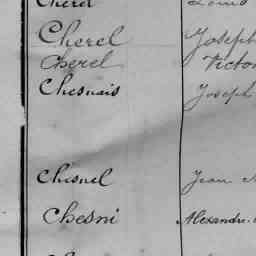 Cherel Louis
Cherel Joseph
Cherel Victor
Chesnais Joseph
Chesnel Jean
Chesni Alexandre